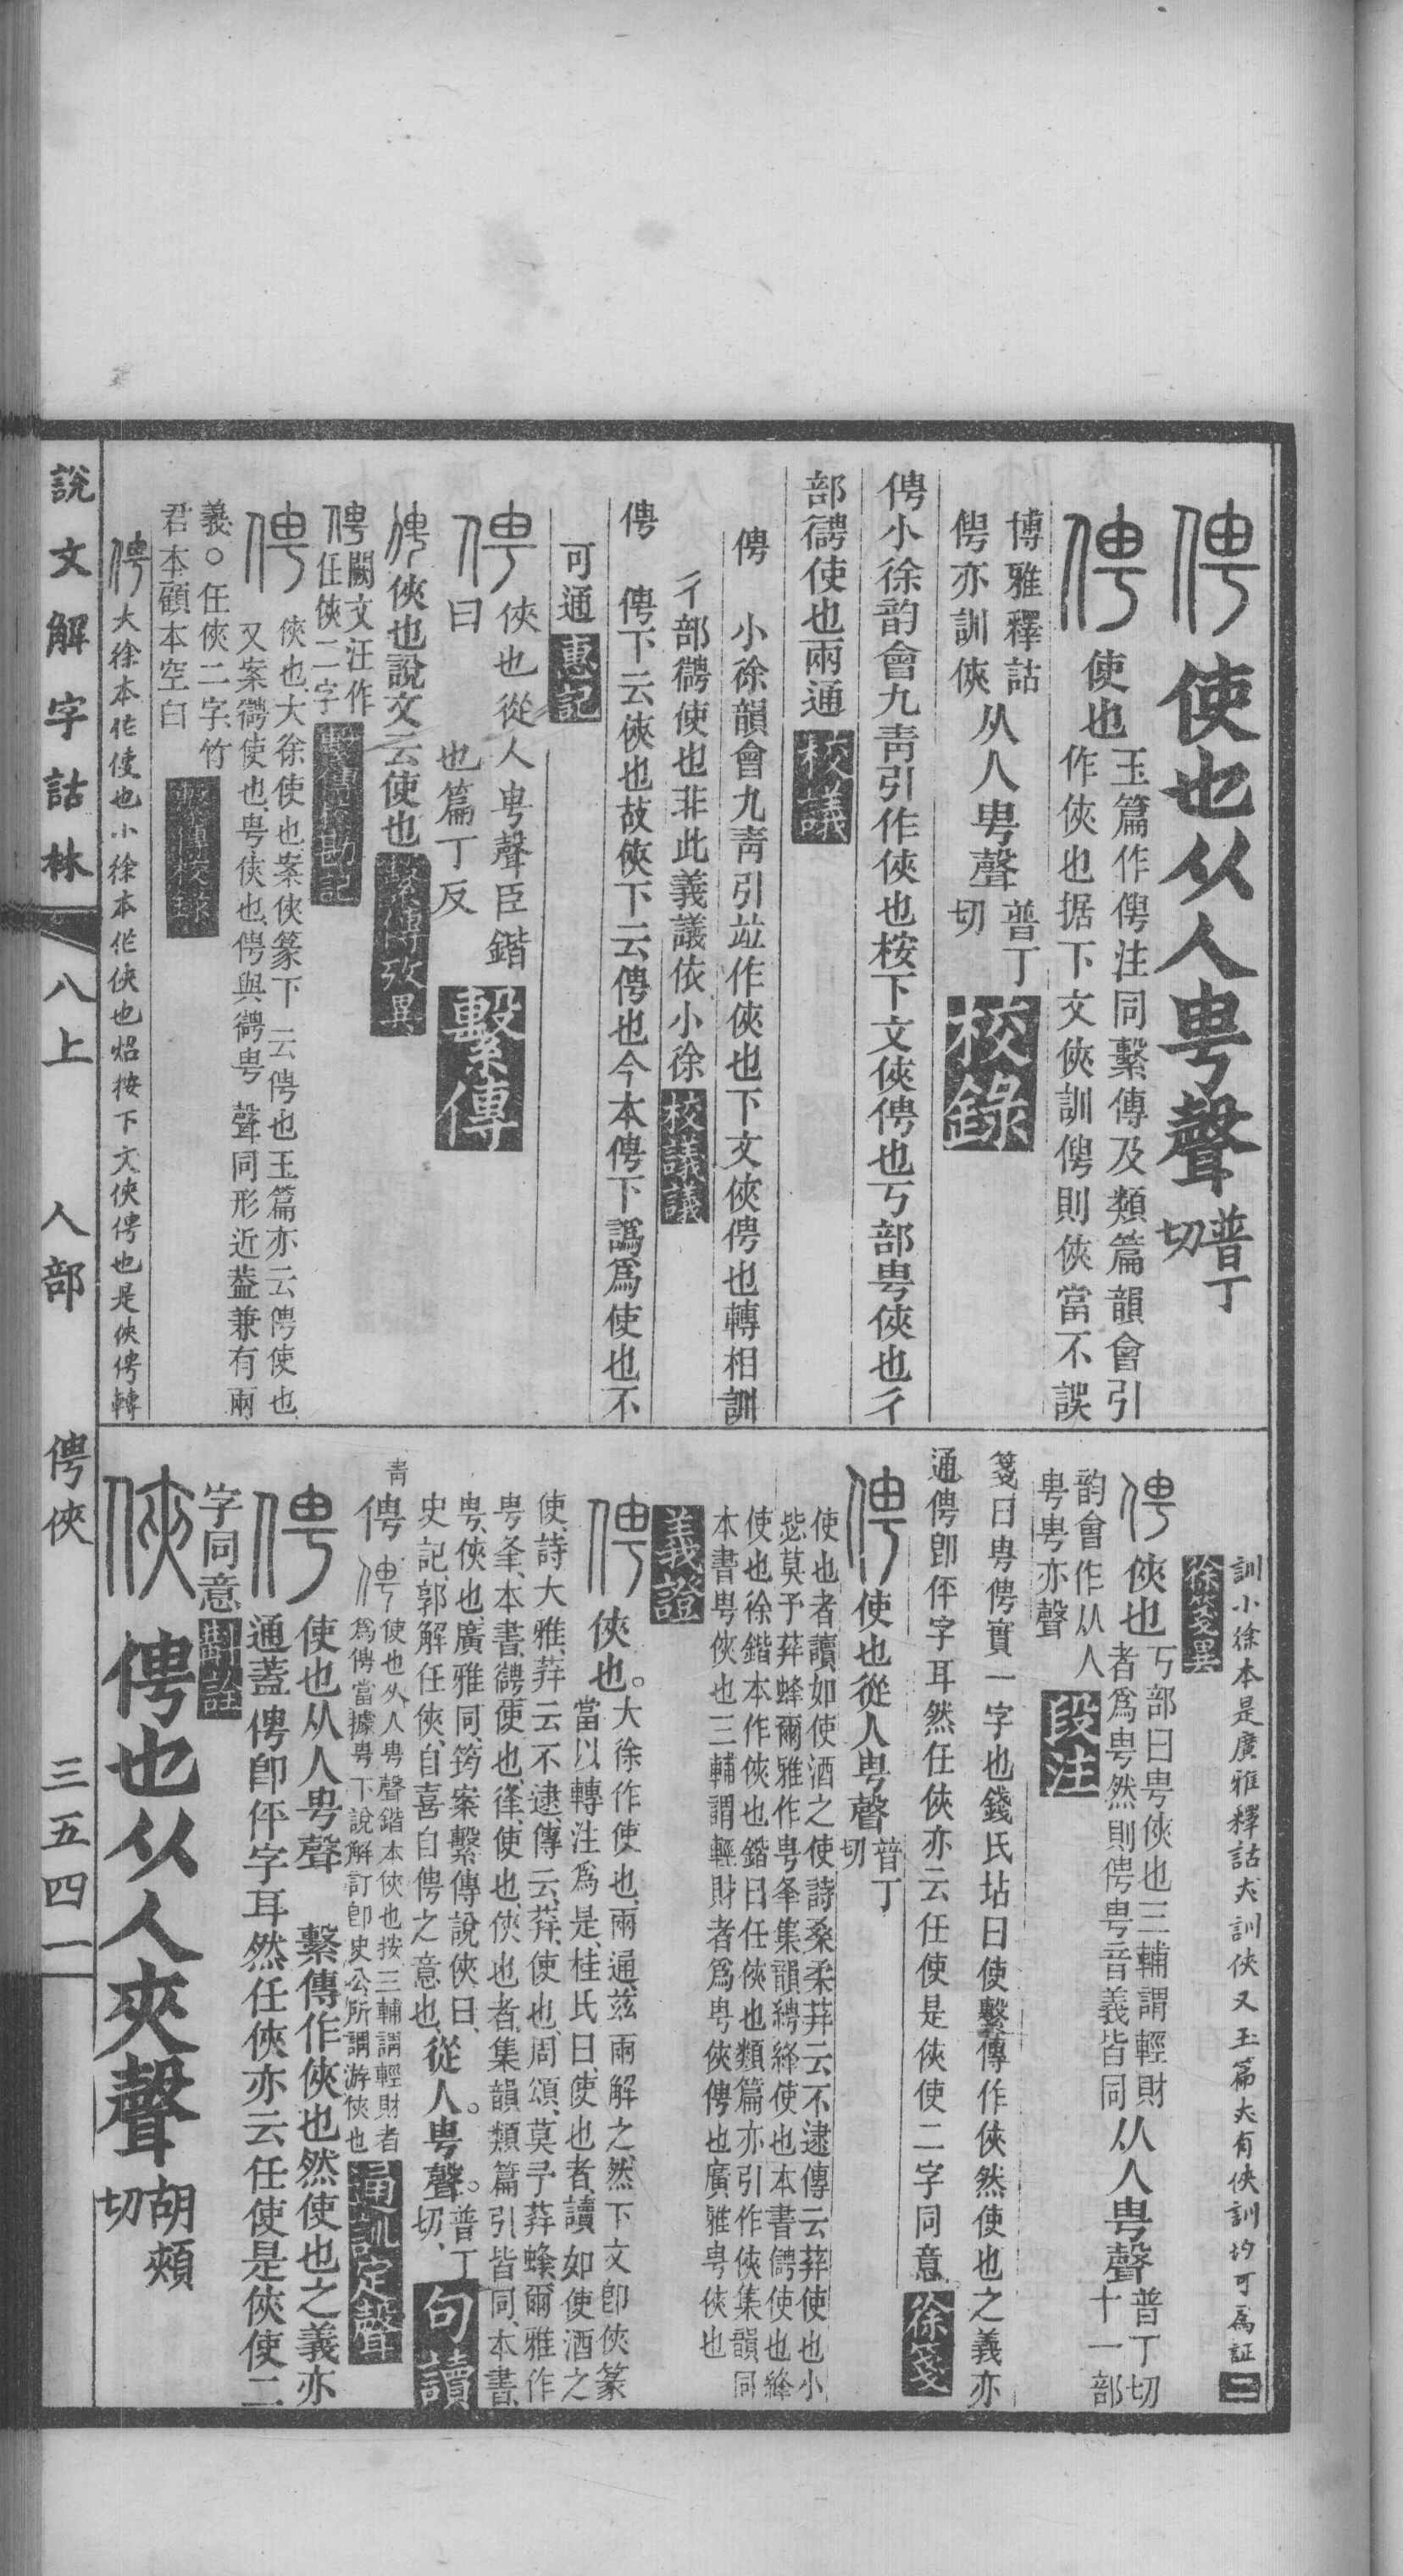 俜 使也从人甹聲 普丁切
俜 使也 玉篇作俜注同繫傳及類篇韻會引
作俠也据下文俠訓俜則俠當不誤
博雅釋詁
俜亦訓俠 从人甹聲 普丁切 校錄
俜小徐韵會九靑引作俠也桉下文俠俜也丂部甹俠也彳
部德使也兩通 校議
俜 小徐韻會九靑引竝作俠也下文俠俜也轉相訓
彳部德使也非此義議依小徐 校議議
俜 俜下云俠也故俠下云俜也今本俜下譌爲使也不
可通 惠記
俜 俠也從人甹聲臣鍇
曰 也篇丁反 繫傳
俜 俠也說文云使也 繫傳攷異
俜 闕文汪作
任俠二字 繫傳校勘記
俜 俠也、大徐使也、案俠篆下云俜也玉篇亦云俜使也
又案德使也、甹俠也、俜與德甹聲同形近葢兼有兩
義○任俠二字、竹
君本顧本空白 繫傳校錄
俜 大徐本作使也小徐本作俠也炤按下文俠俜也是俠俜轉
訓小徐本是廣雅釋詁大訓俠又玉篇大有俠訓竘可爲証 二
徐箋異
俜 俠也 丂部曰甹俠也三輔謂輕財
者爲甹然則俜甹音義皆同 从人甹聲 普丁切
十一部
韵會作从人
甹甹亦聲 段注
箋曰甹俜實一字也錢氏坫曰使繫傳作俠然使也之義亦
通俜卽伻字耳然任俠亦云任使是俠使二字同意 徐箋
俜 使也從人甹聲 普丁切
使也者讀如使酒之使詩桑柔荓云不逮傳云荓使也小
毖莫予荓蜂爾雅作甹夆集韻䛣䋽使也本書德使也䋽
使也徐鍇本作俠也鍇曰任俠也類篇亦引作俠集韻同
本書甹俠也三輔謂輕財者爲甹俠俜也廣雅甹俠也
義證
俜 俠也。大徐作使也、兩通、茲兩解之、然下文卽俠篆
當以轉注爲是、桂氏曰、使也者、讀如使酒之
使、詩大雅、荓云不逮、傳云、荓、使也、周頌、莫予荓蜂爾雅作
甹夆、本書、德使也、夆、使也、俠也者、集韻類篇引皆同、本書、
甹、俠也、廣雅同、筠案繫傳說俠曰、
史記、郭解任俠、自喜自俜之意也、從人。甹聲。普丁切、 句讀
靑 俜 俜 使也从人甹聲鍇本俠也按三輔謂輕財者
爲俜當據甹下說解訂卽史公所謂游俠也 通訓定聲
俜 使也从人甹聲 繫傳作俠也然使也之義亦
通蓋俜卽伻字耳然任俠亦云任使是俠使二
字同意 斠詮
俠 俜也从人夾聲 胡頰切
說文解字詁林 八上 人部 俜俠 三五四一